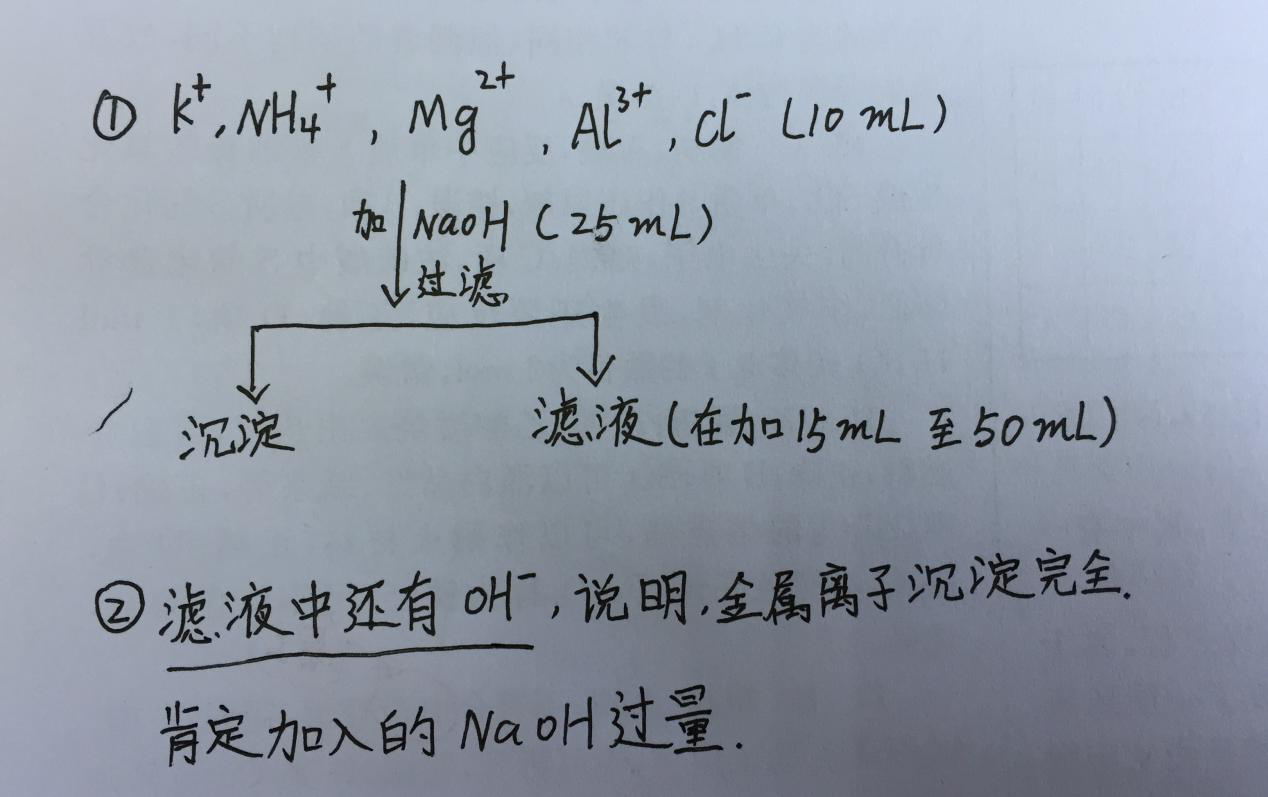 ① K⁺, NH₄⁺, Mg²⁺, Al³⁺, Cl⁻ (10 mL)
加 NaOH (25 mL)
过滤
沉淀 滤液(在加15mL 至50mL)
② 滤液中还有 OH⁻, 说明, 金属离子沉淀完全.
肯定加入的 NaOH 过量.